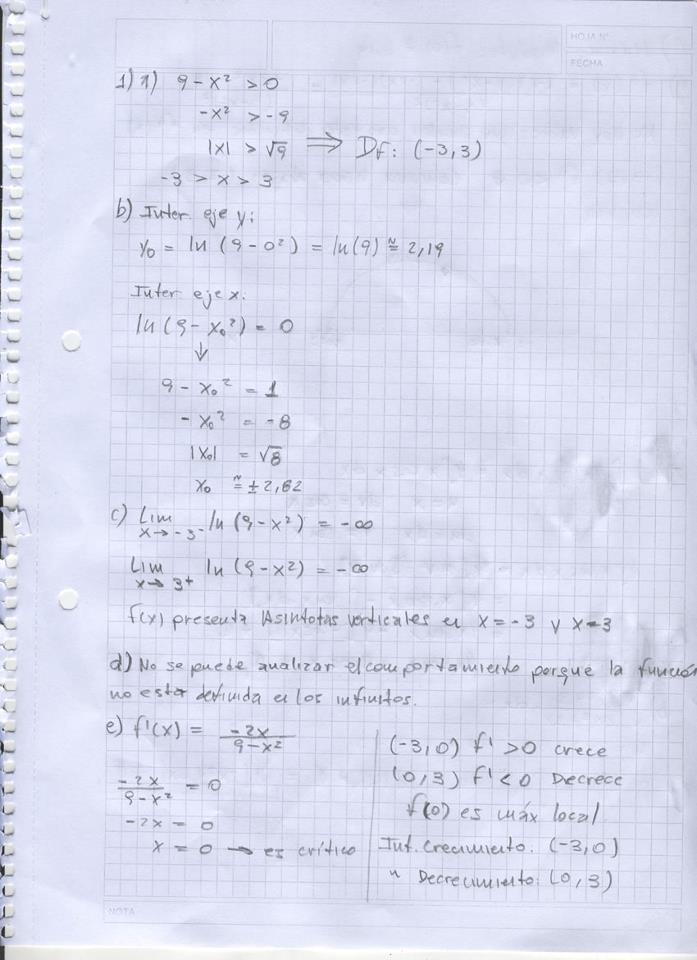 HOJA N°
FECHA
1) 1) 9 - x² > 0
-x² > -9
|x| > √9 ⟹ Df: (-3,3)
-3 > x > 3
b) Inter eje y:
y₀ = ln (9 - 0²) = ln(9) ≅ 2,19
Inter eje x:
ln (9 - x₀²) = 0
↓
9 - x₀² = 1
- x₀² = -8
|x₀| = √8
x₀ ≅ ±2,82
c) Lim x→-3⁻ ln (9-x²) = -∞
Lim x→3⁺ ln (9-x²) = -∞
f(x) presenta Asintotas verticales en x = -3 y x=3
d) No se puede analizar el comportamiento porque la función
no esta definida en los infinitos.
e) f'(x) = -2x / 9-x²
-2x / 9-x² = 0
-2x = 0
x = 0 → es crítico
(-3,0) f' > 0 crece
(0,3) f' < 0 Decrece
f(0) es máx local
Int. Crecimiento: (-3,0)
" Decrecimiento: (0,3)
NOTA